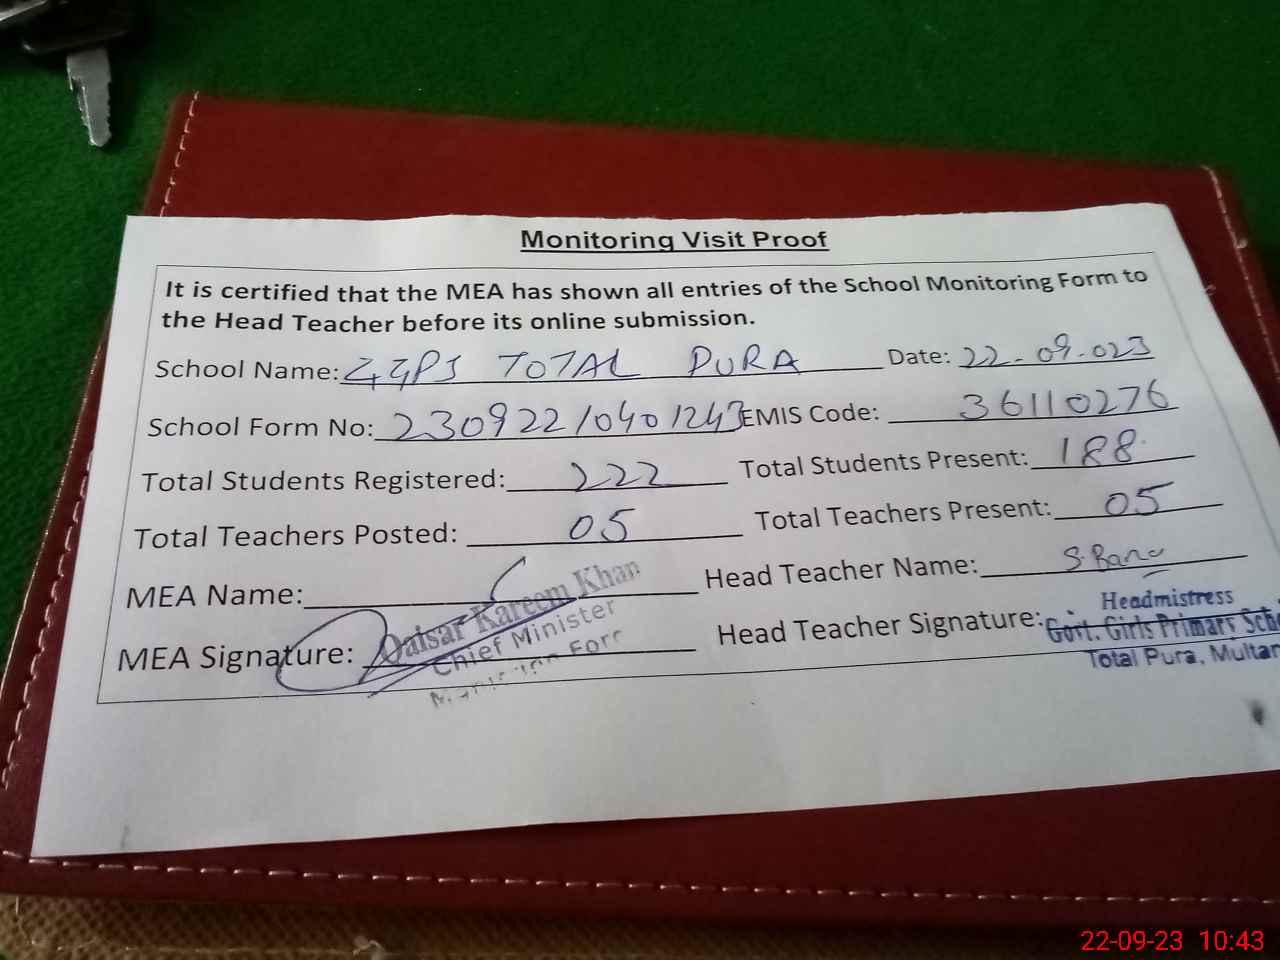 Monitoring Visit Proof
It is certified that the MEA has shown all entries of the School Monitoring Form to
the Head Teacher before its online submission.
School Name: GGPS TOTAL PURA Date: 22-09-023
School Form No: 23092210401243 EMIS Code: 36110276
Total Students Registered: 222 Total Students Present: 188
Total Teachers Posted: 05 Total Teachers Present: 05
MEA Name: Head Teacher Name: S. Bano
MEA Signature: Qaisar Kareem Khan
Chief Minister
Head Teacher Signature: Headmistress
Govt. Girls Primary
Total Pura, Multan
22-09-23 10:43